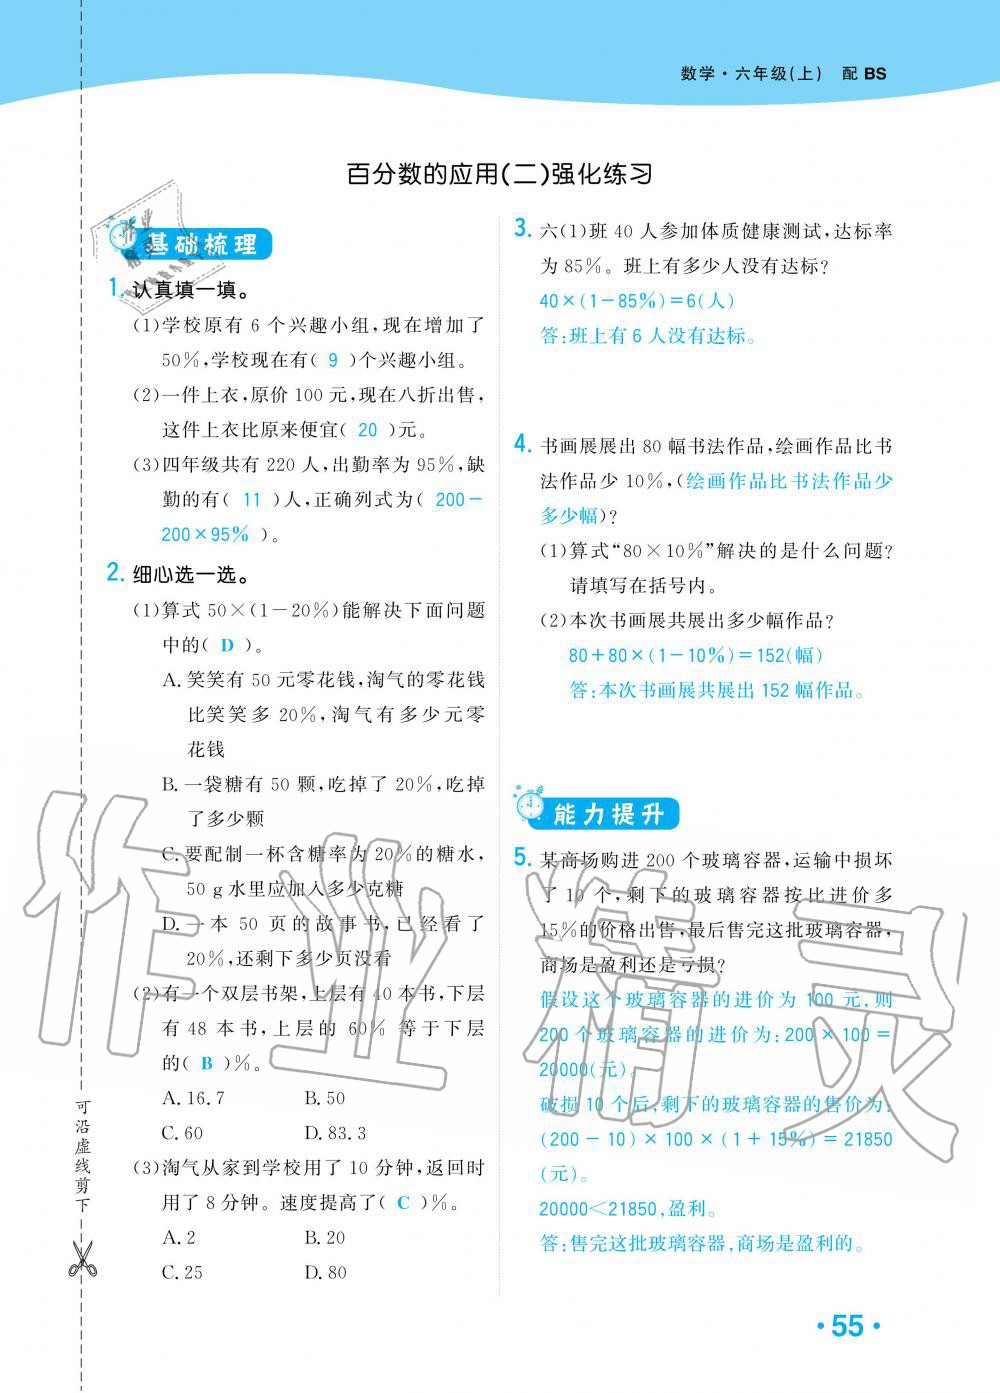 数学·六年级(上) 配 BS
百分数的应用(二)强化练习
基础梳理
1. 认真填一填。
(1)学校原有 6 个兴趣小组,现在增加了
50%,学校现在有( 9 )个兴趣小组。
(2)一件上衣,原价 100 元,现在八折出售,
这件上衣比原来便宜( 20 )元。
(3)四年级共有 220 人,出勤率为 95%,缺
勤的有( 11 )人,正确列式为( 200-
200×95% )。
2. 细心选一选。
(1)算式 50×(1-20%)能解决下面问题
中的( D )。
A. 笑笑有 50 元零花钱,淘气的零花钱
比笑笑多 20%,淘气有多少元零
花钱
B. 一袋糖有 50 颗,吃掉了 20%,吃掉
了多少颗
C. 要配制一杯含糖率为 20%的糖水,
50 g 水里应加入多少克糖
D. 一本 50 页的故事书,已经看了
20%,还剩下多少页没看
(2)有一个双层书架,上层有 40 本书,下层
有 48 本书,上层的 60% 等于下层
的( B )%。
A. 16.7 B. 50
C. 60 D. 83.3
(3)淘气从家到学校用了 10 分钟,返回时
用了 8 分钟。速度提高了( C )%。
A. 2 B. 20
C. 25 D. 80
3. 六(1)班 40 人参加体质健康测试,达标率
为 85%。班上有多少人没有达标?
40×(1-85%)=6(人)
答:班上有 6 人没有达标。
4. 书画展展出 80 幅书法作品,绘画作品比书
法作品少 10%,(绘画作品比书法作品少
多少幅)?
(1)算式“80×10%”解决的是什么问题?
请填写在括号内。
(2)本次书画展共展出多少幅作品?
80+80×(1-10%)=152(幅)
答:本次书画展共展出 152 幅作品。
能力提升
5. 某商场购进 200 个玻璃容器,运输中损坏
了 10 个,剩下的玻璃容器按比进价多
15%的价格出售,最后售完这批玻璃容器,
商场是盈利还是亏损?
假设这个玻璃容器的进价为 100 元,则
200 个玻璃容器的进价为:200×100=
20000(元)。
破损 10 个后,剩下的玻璃容器的售价为:
(200-10)×100×(1+15%)=21850
(元)。
20000<21850,盈利。
答:售完这批玻璃容器,商场是盈利的。
可沿虚线剪下
·55·
作业精灵